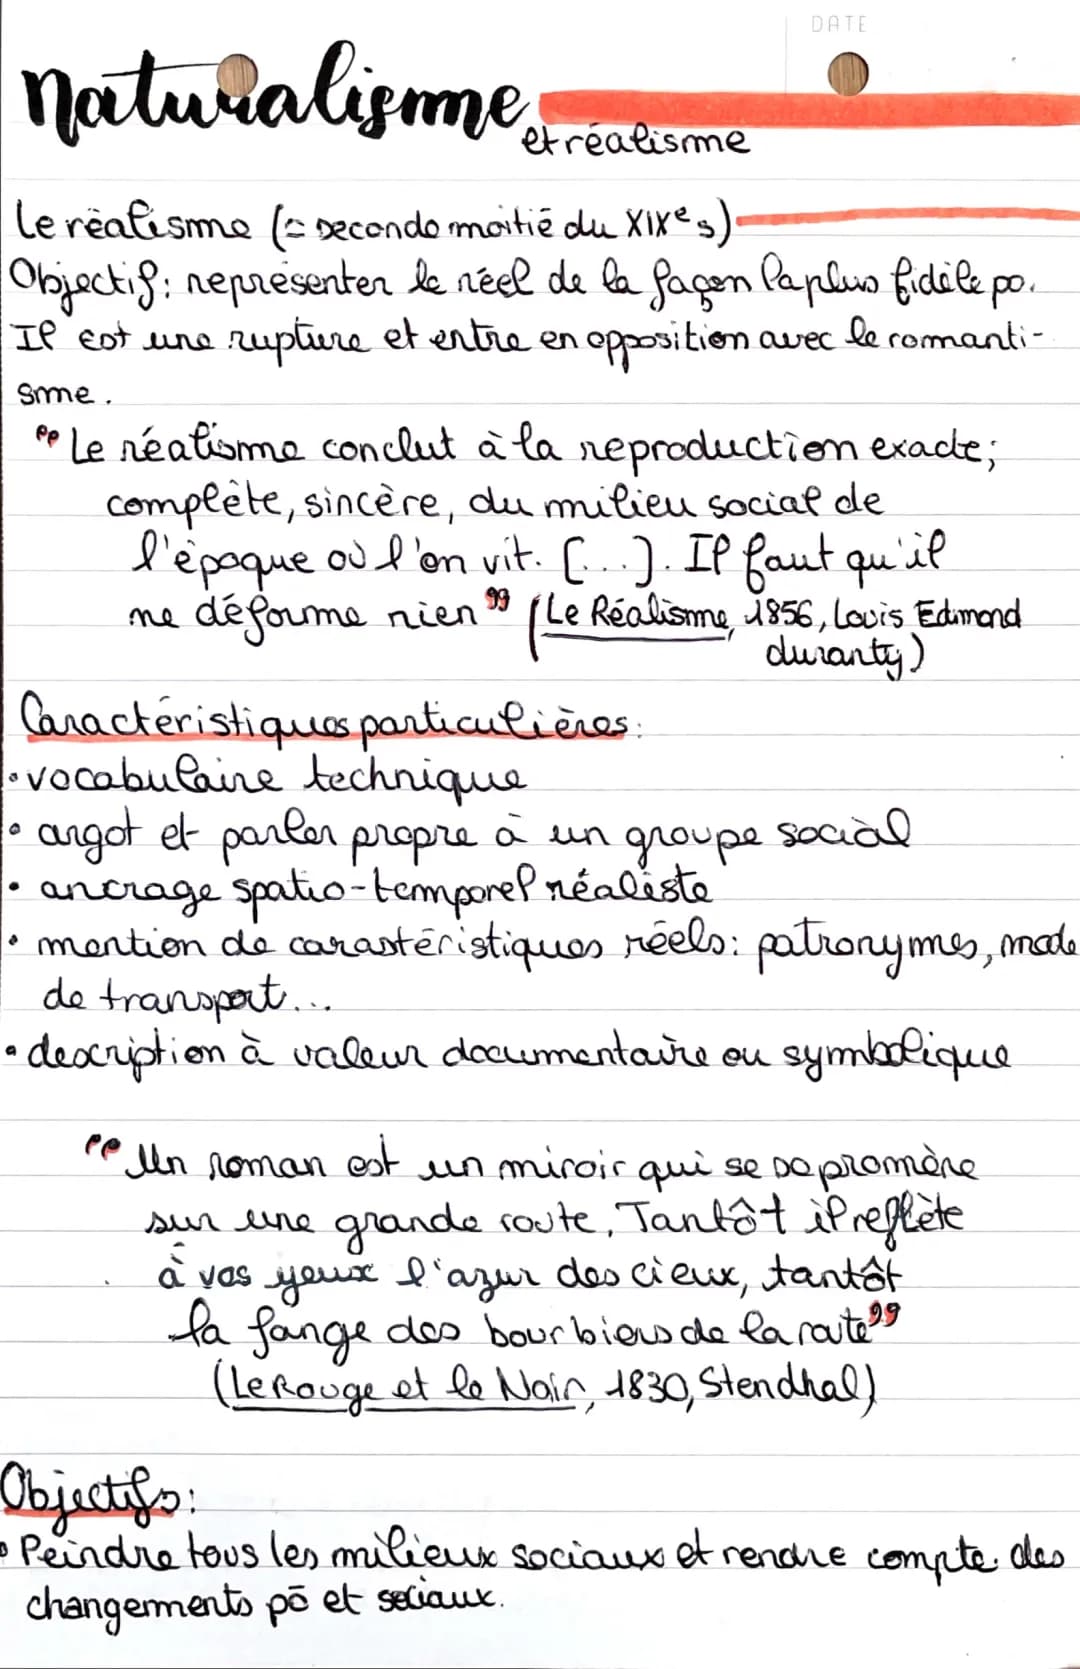 DATE
Naturalisme
et réalisme
Le réalisme (= seconde moitié du XIXe s)
Objectif: représenter le réel de la façon la plus fidèle po.
Il est une rupture et entre en opposition avec le romanti-
sme.
"Le réalisme conclut à la reproduction exacte;
complète, sincère, du milieu social de
l'époque où l'on vit. [...]. Il faut qu'il
ne déforme rien" (Le Réalisme, 1856, Louis Edmond
duranty)
Caractéristiques particulières:
• vocabulaire technique
• argot et parler propre à un groupe social
• ancrage spatio-temporel réaliste
• mention de caractéristiques réels: patronymes, mode
de transport...
• description à valeur documentaire ou symbolique
"Un roman est un miroir qui se promène
sur une grande route, Tantôt il reflète
à vos yeux l'azur des cieux, tantôt
la fange des bourbiers de la route"
(Le Rouge et le Noir, 1830, Stendhal)
Objectifs:
• Peindre tous les milieux sociaux et rendre compte des
changements pō et sociaux.